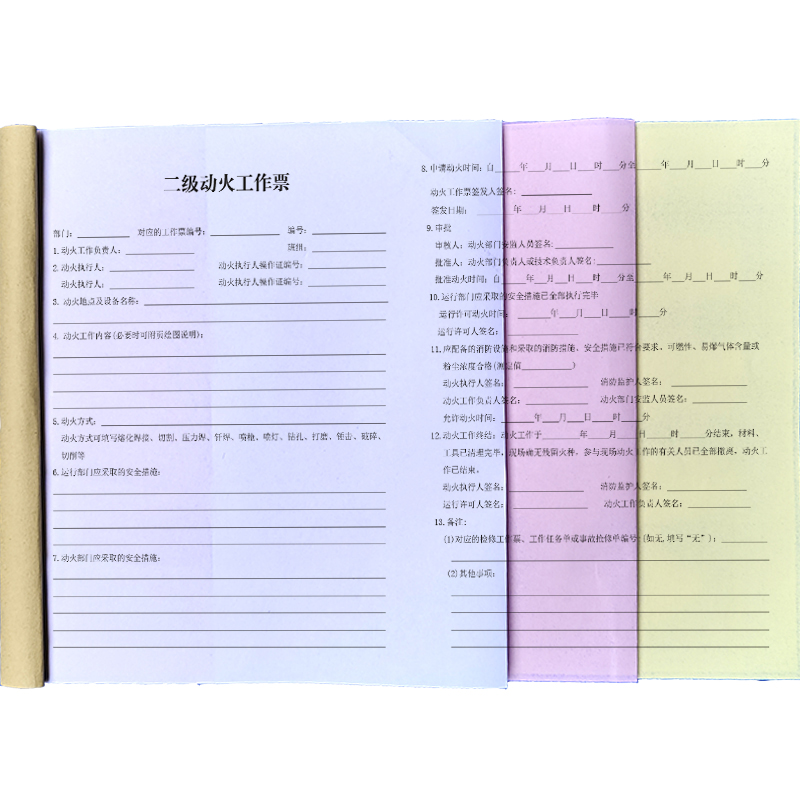 二级动火工作票
部门：__________ 对应的工作票编号：______________ 编号：______________
1.动火工作负责人：______________ 班组：______________
2.动火执行人：______________ 动火执行人操作证编号：______________
动火执行人：______________ 动火执行人操作证编号：______________
3. 动火地点及设备名称：______________
4. 动火工作内容(必要时可附页绘图说明)：
5.动火方式：______________
动火方式可填写熔化焊接、切割、压力焊、钎焊、喷枪、喷灯、钻孔、打磨、锤击、破碎、
切削等
6.运行部门应采取的安全措施：
7.动火部门应采取的安全措施：
8.申请动火时间：自_____年___月___日___时___分至_____年___月___日___时___分
动火工作票签发人签名：______________
签发日期： _____年___月___日___时___分
9.审批
审核人：动火部门安监人员签名：______________
批准人：动火部门负责人或技术负责人签名：______________
批准动火时间：自_____年___月___日___时___分至_____年___月___日___时___分
10.运行部门应采取的安全措施已全部执行完毕
运行许可动火时间： _____年___月___日___时___分
运行许可人签名：______________
11.应配备的消防设施和采取的消防措施、安全措施已符合要求，可燃性、易爆气体含量或
粉尘浓度合格(测定值__________)
动火执行人签名：______________ 消防监护人签名：______________
动火工作负责人签名：______________ 动火部门安监人员签名：______________
允许动火时间：_____年___月___日___时___分
12.动火工作终结：动火工作于_____年___月___日___时___分结束，材料、
工具已清理完毕，现场确无残留火种，参与现场动火工作的有关人员已全部撤离，动火工
作已结束。
动火执行人签名：______________ 消防监护人签名：______________
运行许可人签名：______________ 动火工作负责人签名：______________
13.备注：
(1)对应的检修工作票、工作任务单或事故抢修单编号(如无,填写“无”)：__________
(2)其他事项：